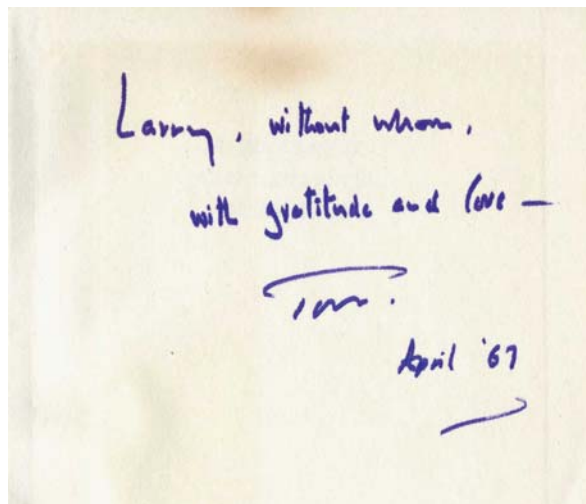 Larry, without whom,
with gratitude and love —
Tom.
April '67